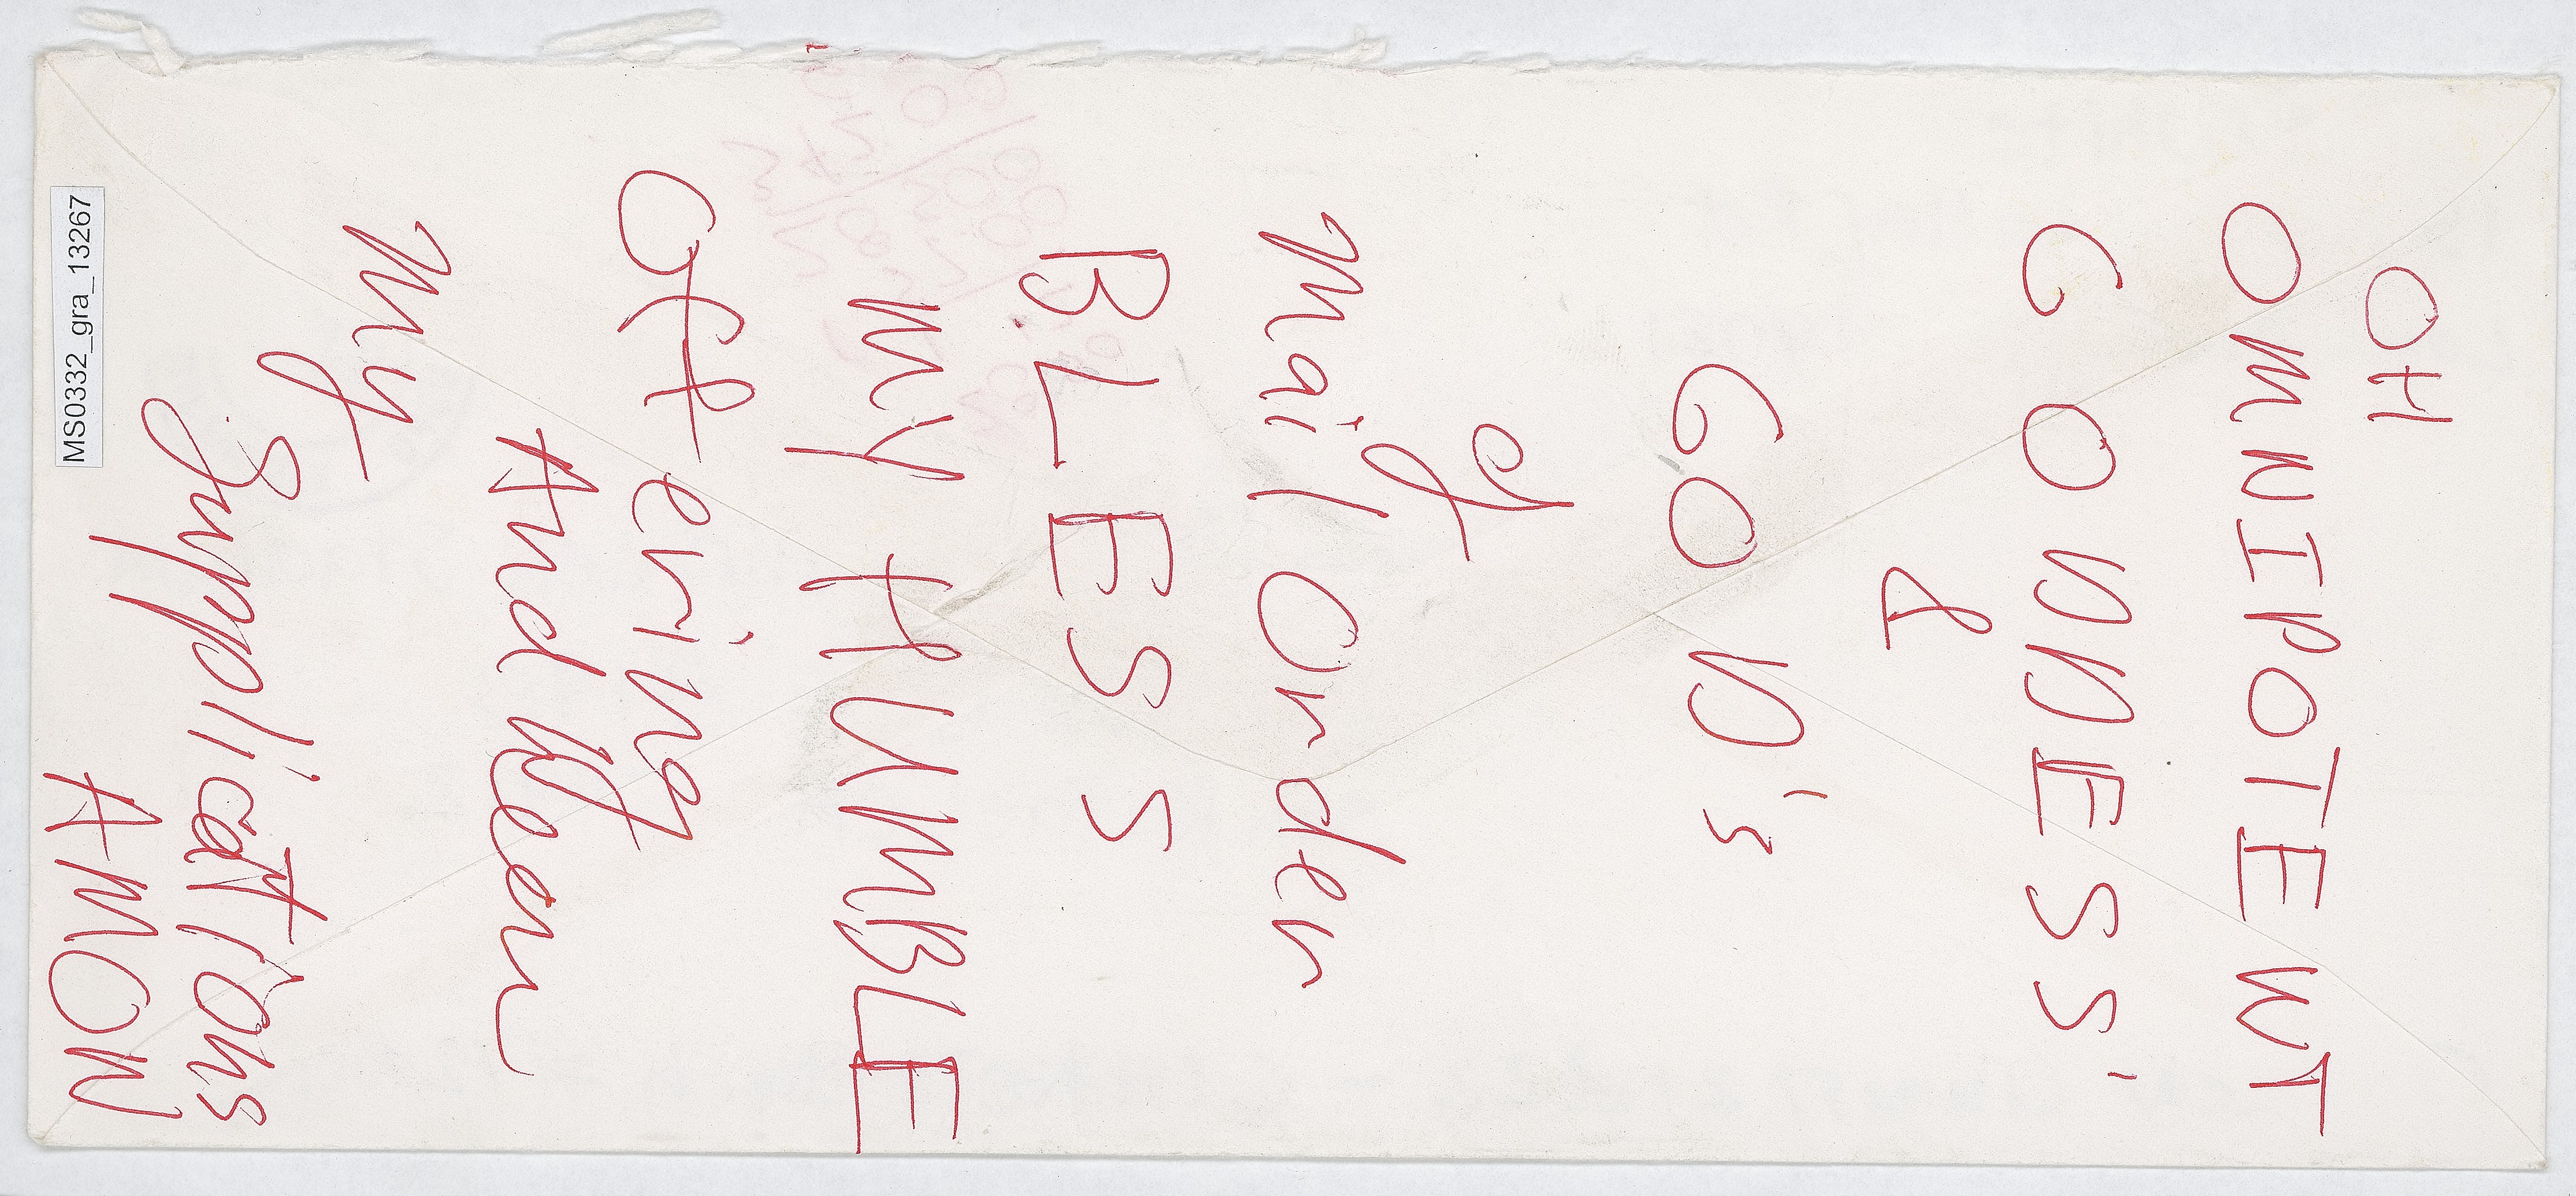 OH
OMNIPOTENT
GODDESS'
&
GOD'S
of
Mail Order
BLESS
MY HUMBLE
Offering
And Hear
My
Supplications
AMON
MS0332_gra_13267